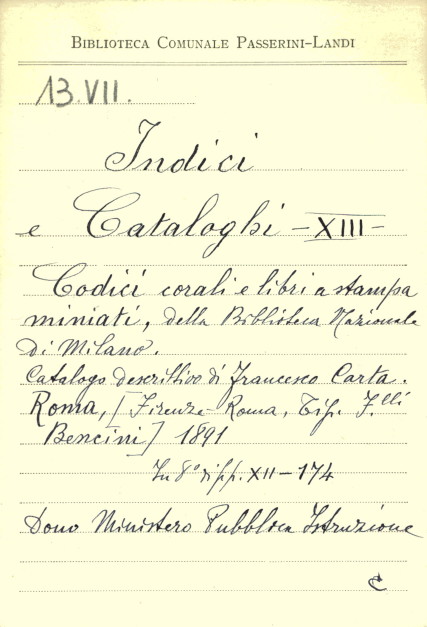 BIBLIOTECA COMUNALE PASSERINI-LANDI
13.VII.
Indici
e Cataloghi -XIII-
Codici corali e libri a stampa
miniati, della Biblioteca Nazionale
di Milano.
Catalogo descrittivo di Francesco Carta.
Roma, [Firenze-Roma, Tip. F.lli
Bencini] 1891
In 8° di pp. XII-174
Dono Ministero Pubblica Istruzione
C